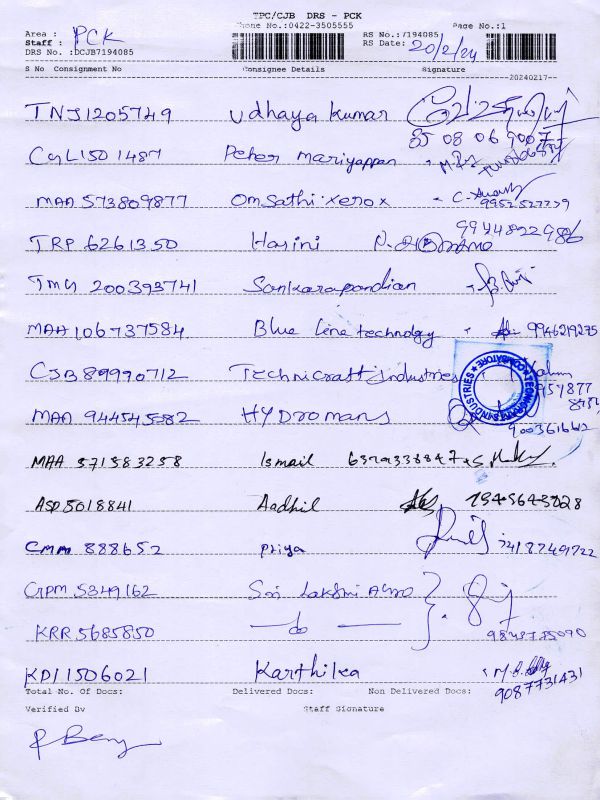 TPC/CJB DRS - PCK
Phone No.:0422-3505555 Page No.:1
Area : PCK RS No.:7194085
Staff : RS Date: 20/2/24
DRS No. :DCJB7194085
S No Consignment No Consignee Details Signature
20240217
TNJ1205749 Udhaya kumar
85 08 06 9007
CGL1501487 Peter mariyappan
MAA 573809877 Om Sathi xerox
9952527779
TRP 6261350 Hasini 9944822986
TMG 200393741 Sankarapandian
MAA 106737584 Blue line technology 9946219275
CJB 89990712 Technicraft industries
MAA 944545582 HYDromans
MAA 571583258 Ismail
ASP 5018841 Aadhil
CMM 888652 Priya
GPM 5349162 Sri Lakshmi
KRR 5685850 do
KDI 1506021 Karthika
9087731431
Total No. Of Docs: Delivered Docs: Non Delivered Docs:
Verified By Staff Signature